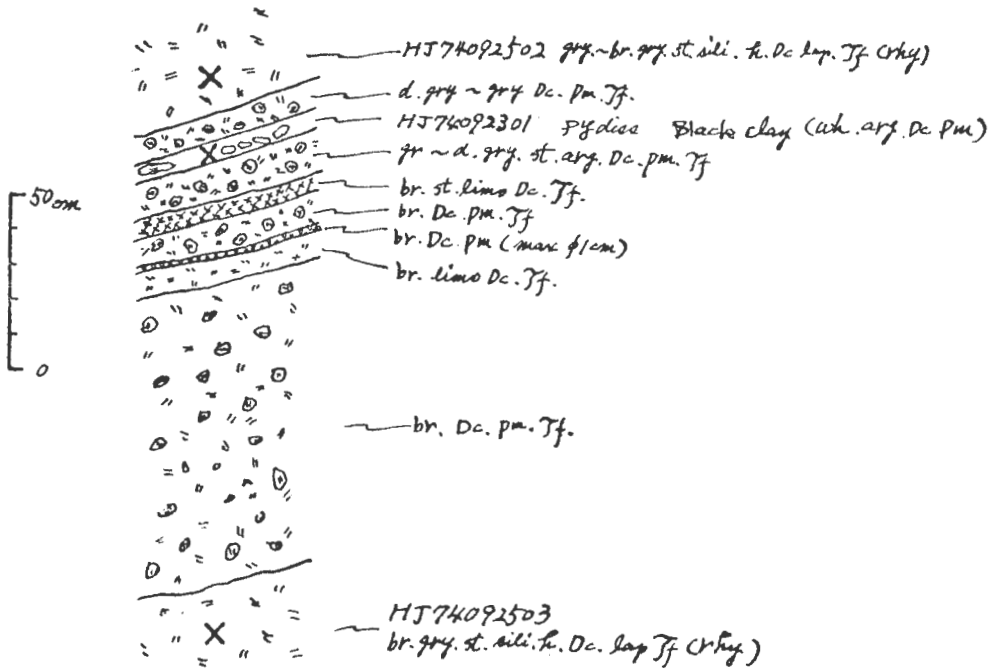 HJ74092502 gry~br.gry.st.sili.h.Dc lap.Tf (rhy)
d.gry~gry Dc.Pm.Tf.
HJ74092301 Pydiss Black clay (wh.arg.Dc Pm)
gr~d.gry.st.arg.Dc.pm.Tf
50cm
br.st.limo Dc.Tf.
br.Dc.pm.Tf
br.Dc.pm (max φ1cm)
br.limo Dc.Tf.
0
br.Dc.pm.Tf.
HJ74092503
br.gry.st.sili.h.Dc.lap Tf (rhy)